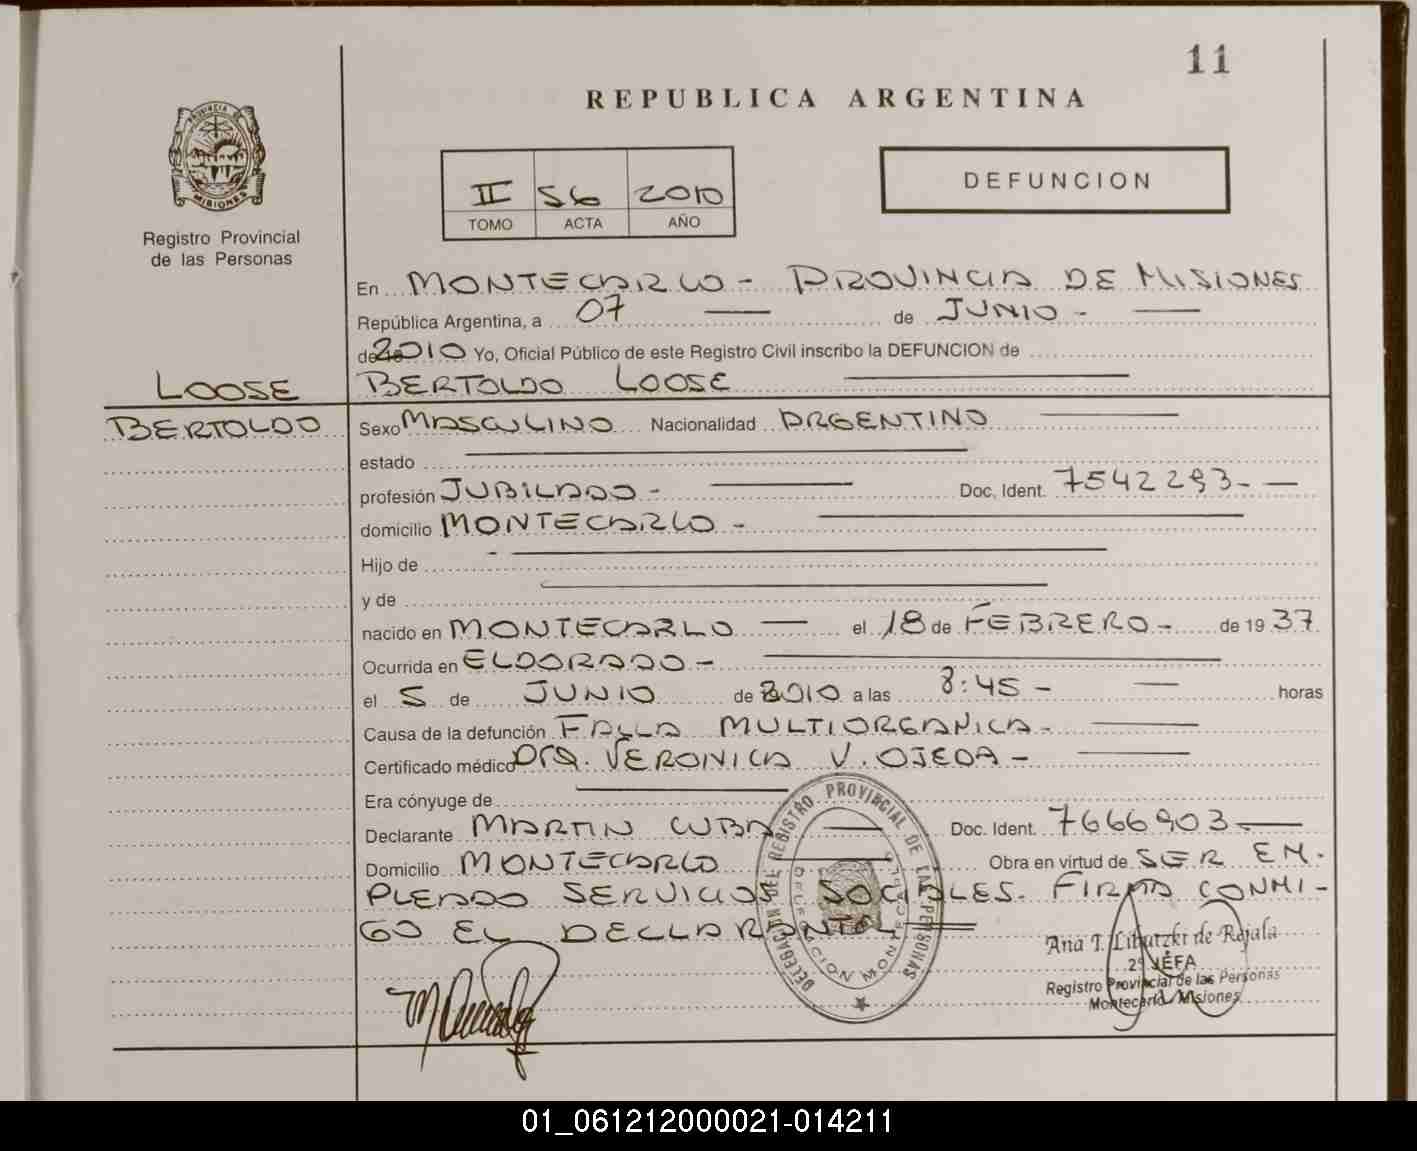 11
REPUBLICA ARGENTINA
PROVINCIA DE
MISIONES
Registro Provincial
de las Personas
II 56 2010
TOMO ACTA AÑO
DEFUNCION
En MONTECARLO - PROVINCIA DE MISIONES
República Argentina, a 07 de JUNIO -
de 2010 Yo, Oficial Público de este Registro Civil inscribo la DEFUNCION de
LOOSE
BERTOLDO
BERTOLDO LOOSE
Sexo MASCULINO Nacionalidad ARGENTINO
estado
profesión JUBILADO - Doc. Ident. 7542293 -
domicilio MONTECARLO -
Hijo de
y de
nacido en MONTECARLO el 18 de FEBRERO - de 19 37
Ocurrida en ELDORADO -
el 5 de JUNIO de 2010 a las 8:45 - horas
Causa de la defunción FALLA MULTIORGANICA -
Certificado médico DRA. VERONICA V. OJEDA -
Era cónyuge de
Declarante MARTIN CUBA Doc. Ident. 7666903 -
Domicilio MONTECARLO Obra en virtud de SER EM-
PLEADO SERVICIOS SOCIALES. FIRMA CONMI-
GO EL DECLARANTE
DELEGACION DEL REGISTRO PROVINCIAL DE LAS PERSONAS
Ana T. Libutzki de Rejala
2º JEFA
Registro Provincial de las Personas
Montecarlo Misiones
01_061212000021-014211